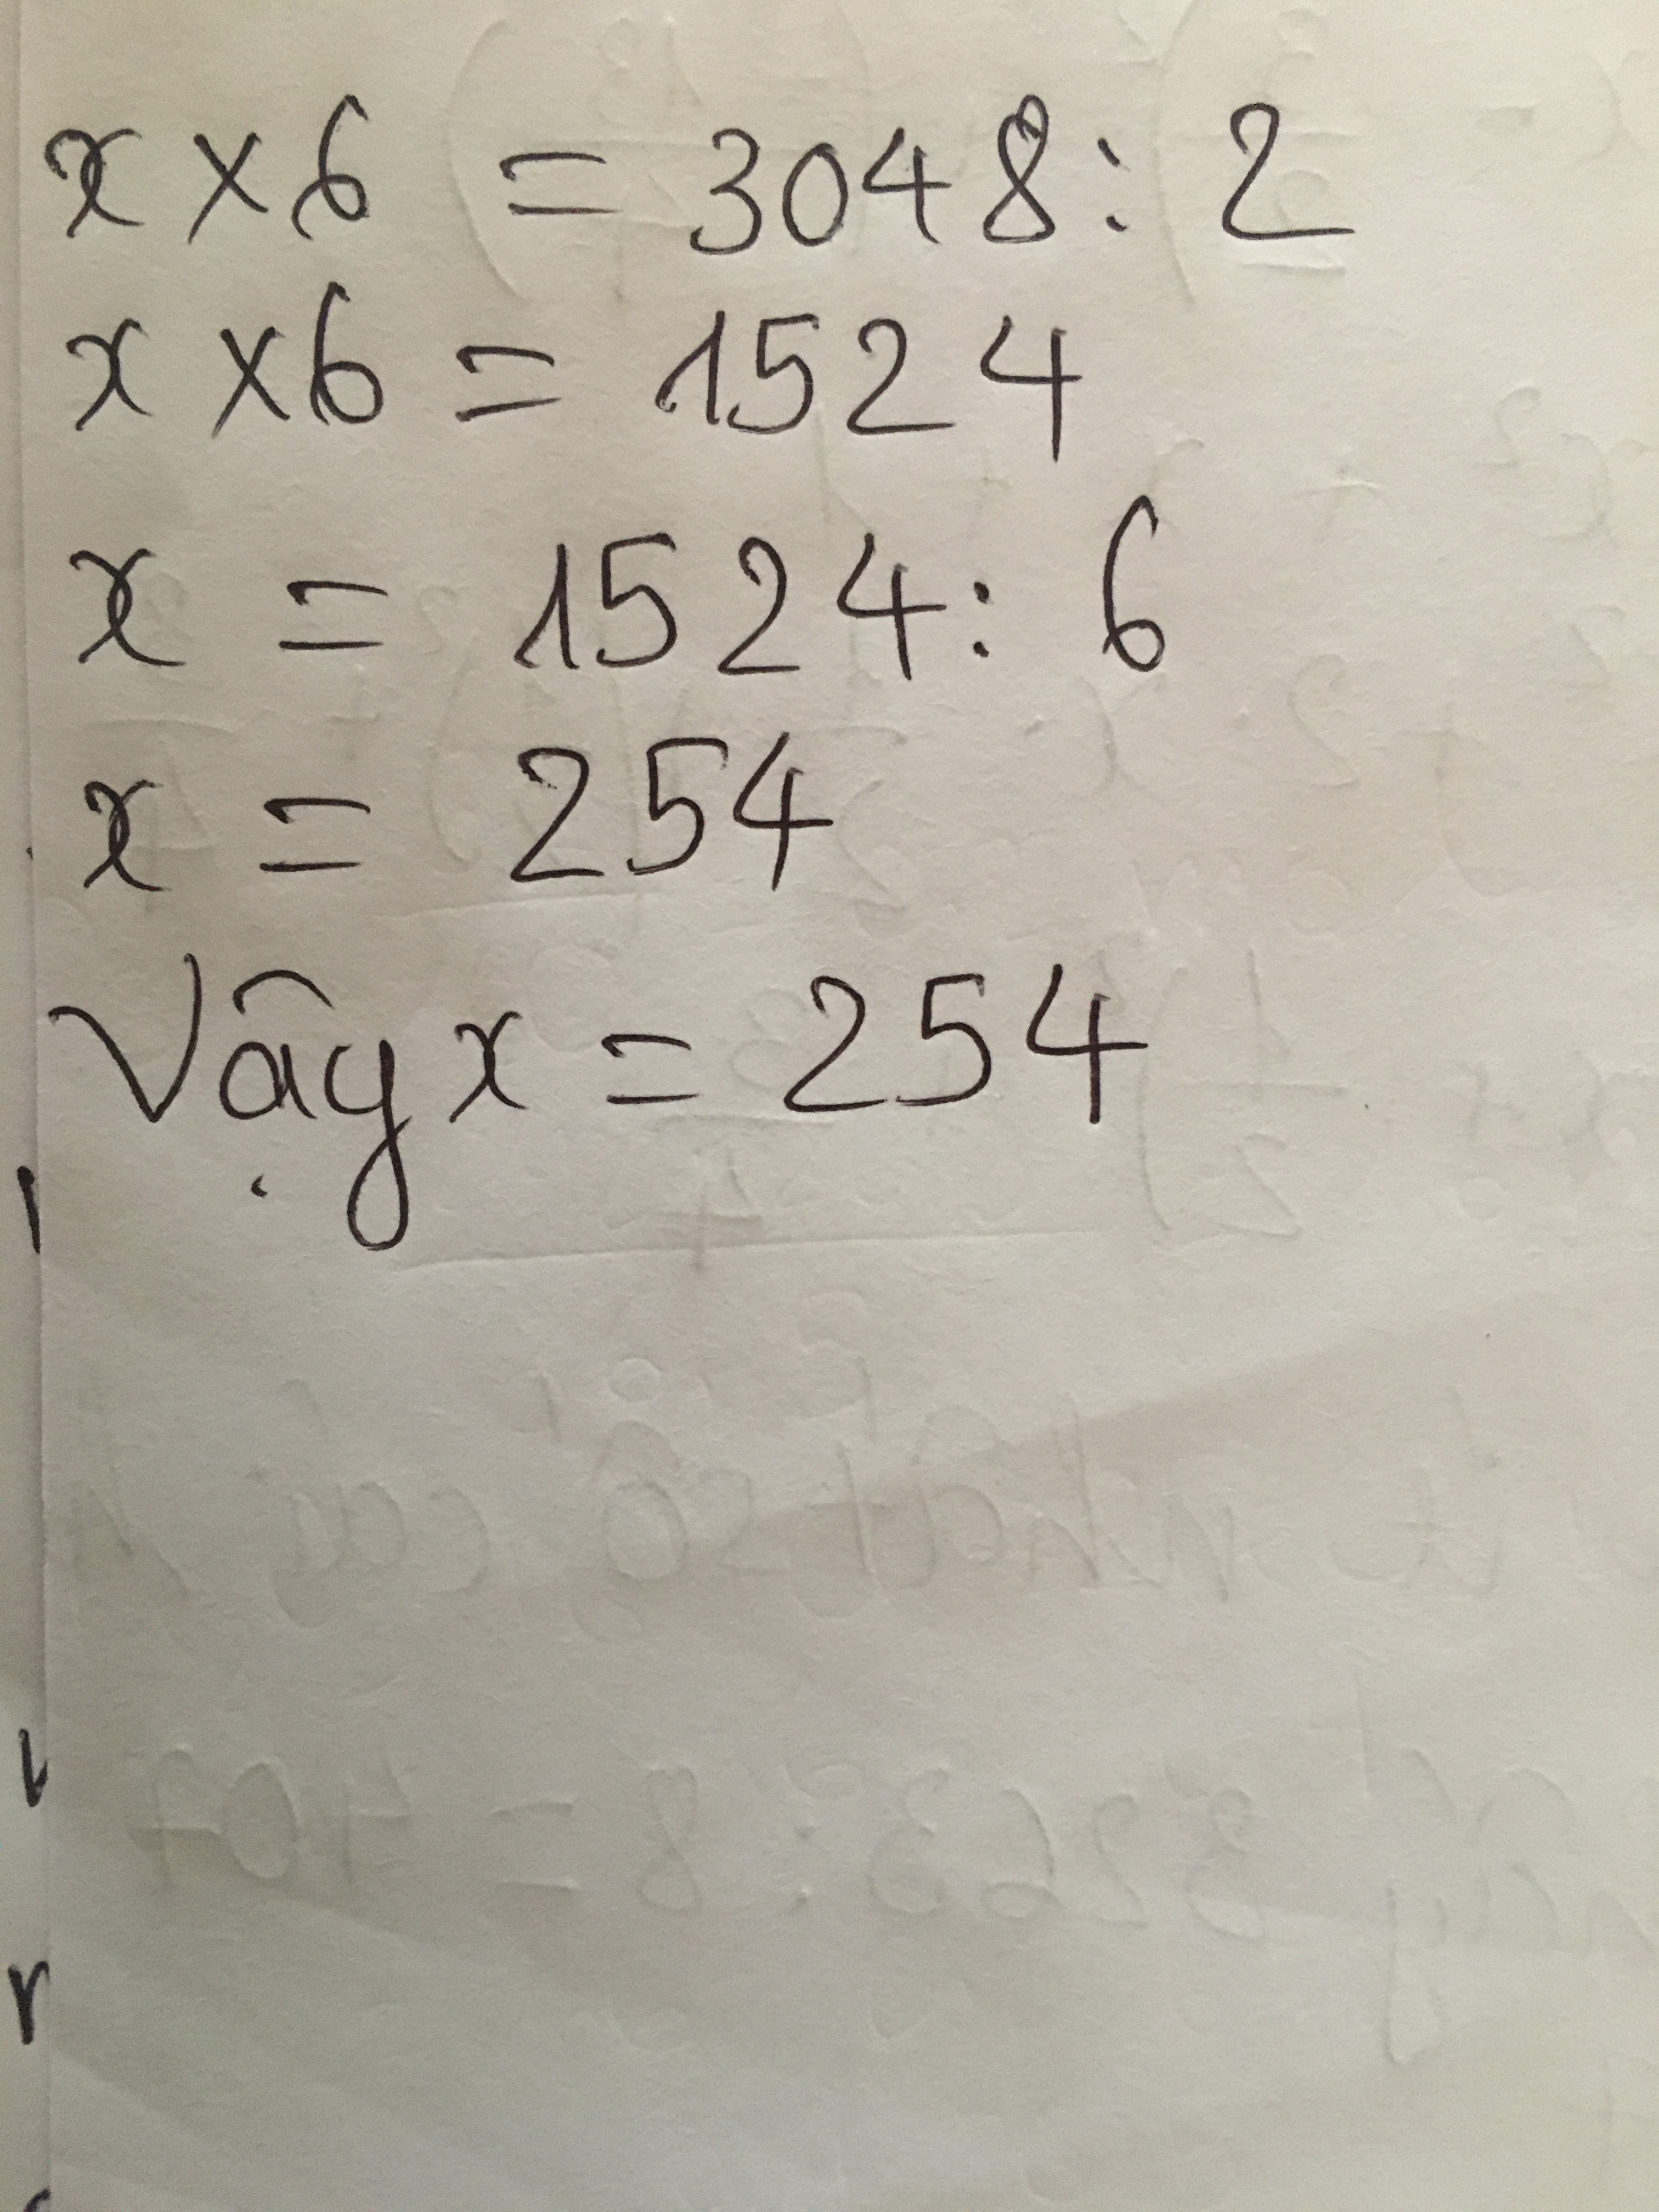 x × 6 = 3048 : 2
x × 6 = 1524
x = 1524 : 6
x = 254
Vậy x = 254